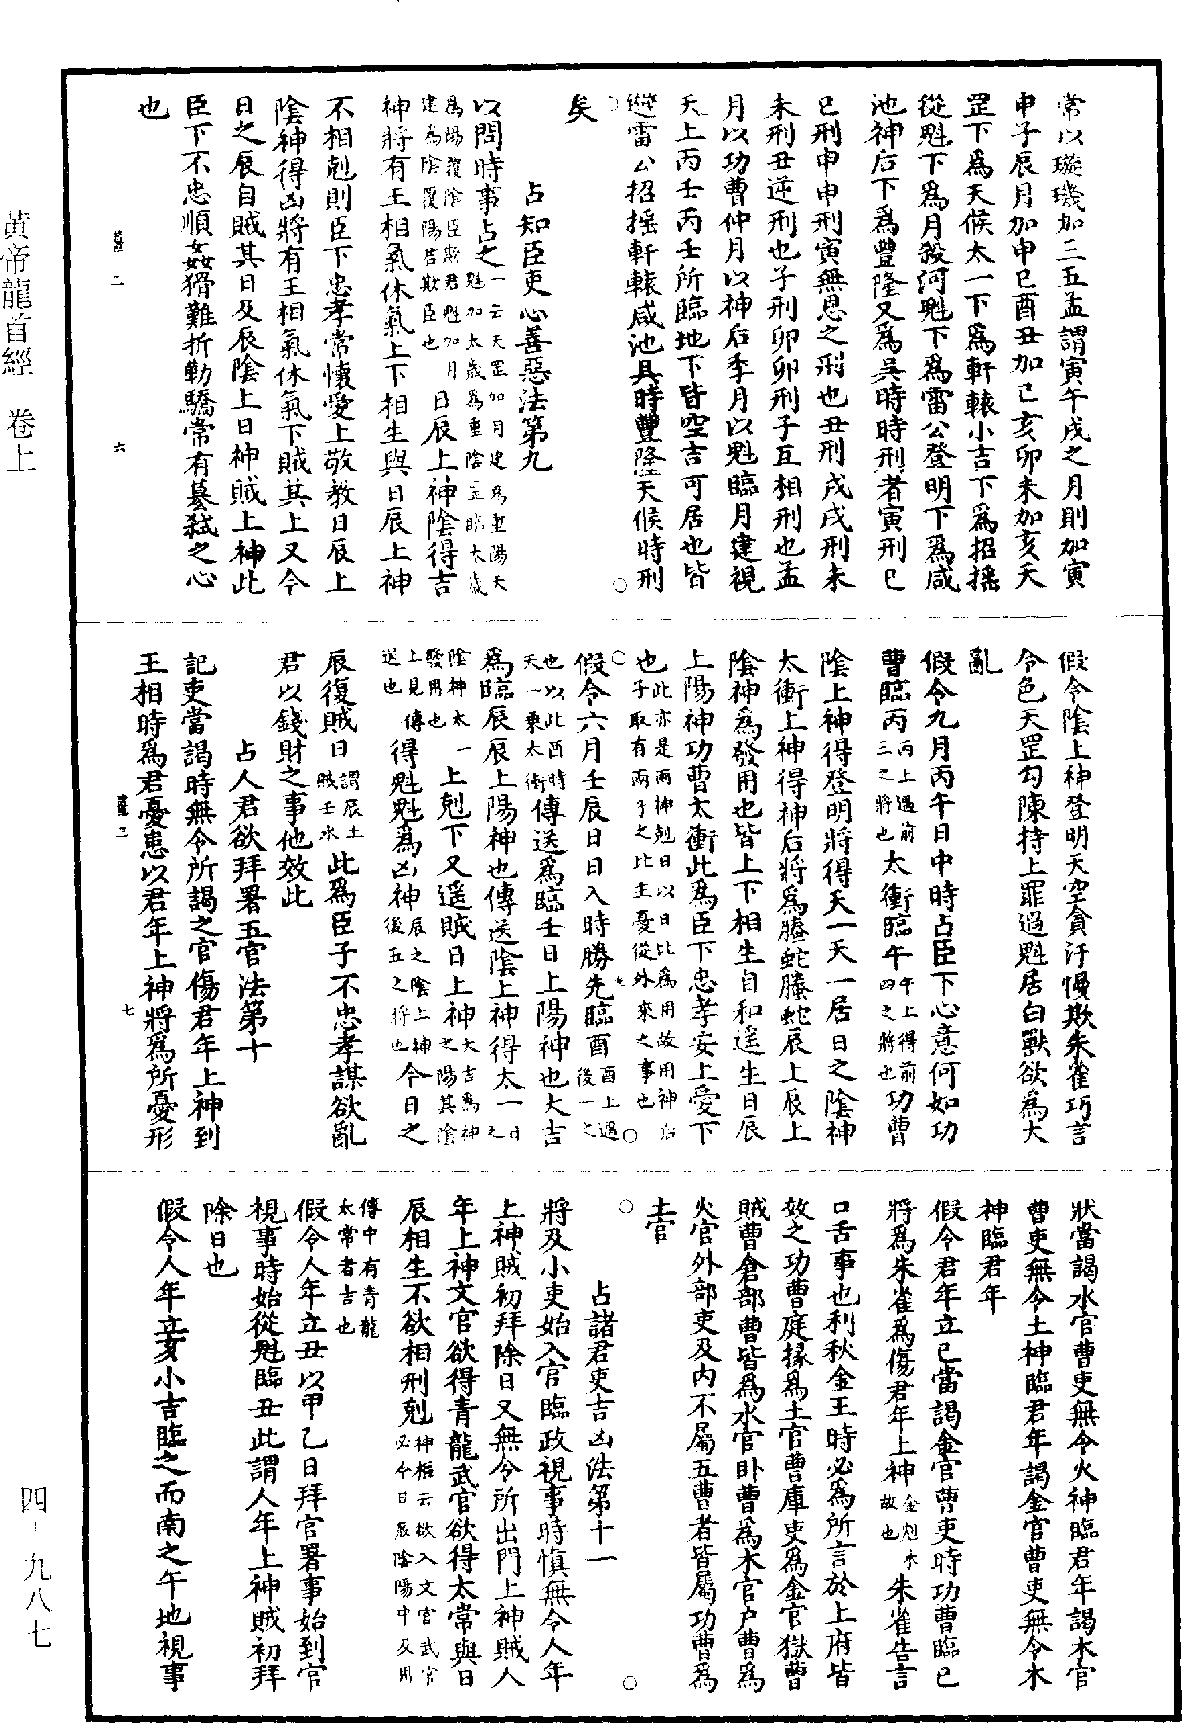 常以璇璣加三五孟謂寅午戌之月則加寅
申子辰月加申巳酉丑加巳亥卯未加亥天
罡下爲天候太一下爲軒轅小吉下爲招搖
從魁下爲月殺河魁下爲雷公登明下爲咸
池神后下爲豐隆又爲吳時時刑者寅刑巳
巳刑申申刑寅無恩之刑也丑刑戌戌刑未
未刑丑逆刑也子刑卯卯刑子互相刑也孟
月以功曹仲月以神后季月以魁臨月建視
天上丙壬丙壬所臨地下皆空吉可居也皆
避雷公招搖軒轅咸池具時豐隆天候時刑
矣
占知臣吏心善惡法第九
以問時事占之一云天罡加月建爲重陽天魁加太歲爲重陰罡臨太歲
爲陽覆陰臣欺君魁加月建爲陰覆陽君欺臣也日辰上神陰得吉
神將有王相氣休氣上下相生與日辰上神
不相剋則臣下忠孝常懷愛上敬教日辰上
陰神得凶將有王相氣休氣下賊其上又今
日之辰自賊其日及辰陰上日神賊上神此
臣下不忠順姦猾難折勅驕常有墓弑之心
也
二
六
假令陰上神登明天空貪汙慢欺朱雀巧言
令色天罡勾陳持上罪過魁居白獸欲爲大
亂
假令九月丙午日中時占臣下心意何如功
曹臨丙丙上遇前三之將也太衝臨午午上得前四之將也功曹
陰上神得登明將得天一天一居日之陰神
太衝上神得神后將爲螣蛇螣蛇辰上辰上
陰神爲發用也皆上下相生自和遥生日辰
上陽神功曹太衝此爲臣下忠孝安上愛下
也此亦是兩神剋日以日比爲用故用神后也子取有兩子之比主憂從外來之事也
假令六月壬辰日日入時勝先臨酉酉上遇後一之
也以此酉時天一乘太衝傳送爲臨壬日上陽神也大吉
爲臨辰辰上陽神也傳送陰上神得太一日之
陰神太一發用也上剋下又遥賊日上神大吉爲神之陽其陰
上見傳送也得魁魁爲凶神辰之陰上神後五之將也今日之
辰復賊日謂辰土賊壬水此爲臣子不忠孝謀欲亂
君以錢財之事他效此
占人君欲拜署五官法第十
記吏當謁時無令所謁之官傷君年上神到
王相時爲君憂患以君年上神將爲所憂形
二
七
狀當謁水官曹吏無令火神臨君年謁木官
曹吏無令土神臨君年謁金官曹吏無令木
神臨君年
假令君年立巳當謁金官曹吏時功曹臨巳
將爲朱雀爲傷君年上神金剋木故也朱雀告言
口舌事也利秋金王時必爲所言於上府皆
效之功曹庭掾爲土官曹庫吏爲金官獄曹
賊曹倉部曹皆爲水官卧曹爲木官户曹爲
火官外部吏及内不屬五曹者皆屬功曹爲
土官
占諸君吏吉凶法第十一
將及小吏始入官臨政視事時慎無令人年
上神賊初拜除日又無令所出門上神賊人
年上神文官欲得青龍武官欲得太常與日
辰相生不欲相刑剋神樞云欲入文官武官必今日辰陰陽中及用
傳中有青龍太常者吉也
假令人年立丑以甲乙日拜官署事始到官
視事時始從魁臨丑此謂人年上神賊初拜
除日也
假令人年立亥小吉臨之而南之午地視事
黃帝龍首經 卷上
四-九八七